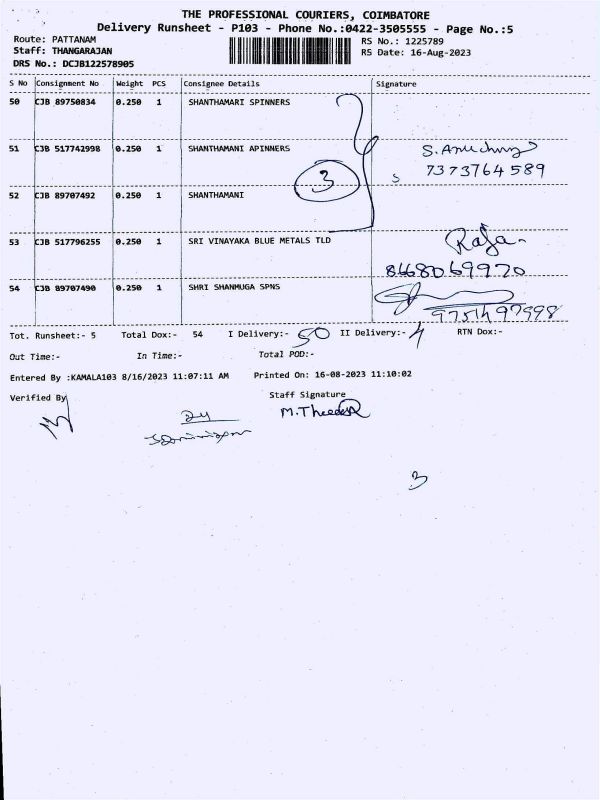 THE PROFESSIONAL COURIERS, COIMBATORE
Delivery Runsheet - P103 - Phone No.:0422-3505555 - Page No.:5
Route: PATTANAM
RS No.: 1225789
Staff: THANGARAJAN
RS Date: 16-Aug-2023
DRS No.: DCJB122578905
S No Consignment No Weight PCS Consignee Details Signature
50 CJB 89750834 0.250 1 SHANTHAMARI SPINNERS
51 CJB 517742998 0.250 1 SHANTHAMANI APINNERS
7373764589
3
52 CJB 89707492 0.250 1 SHANTHAMANI
53 CJB 517796255 0.250 1 SRI VINAYAKA BLUE METALS TLD Raja
8668069970
54 CJB 89707490 0.250 1 SHRI SHANMUGA SPNS
Tot. Runsheet:- 5 Total Dox:- 54 I Delivery:- 50 II Delivery:- 4 RTN Dox:-
Out Time:- In Time:- Total POD:-
Entered By :KAMALA103 8/16/2023 11:07:11 AM Printed On: 16-08-2023 11:10:02
Verified By Staff Signature
3